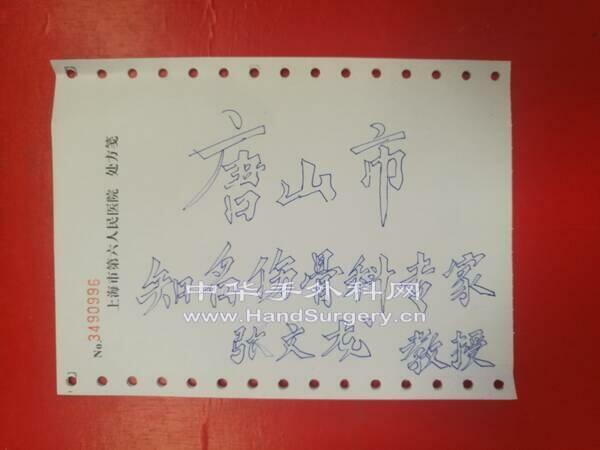 唐山市
知名伤骨科专家
张文龙 教授
上海市第六人民医院 处方笺
No.3490996
中华手外科网
www.HandSurgery.cn